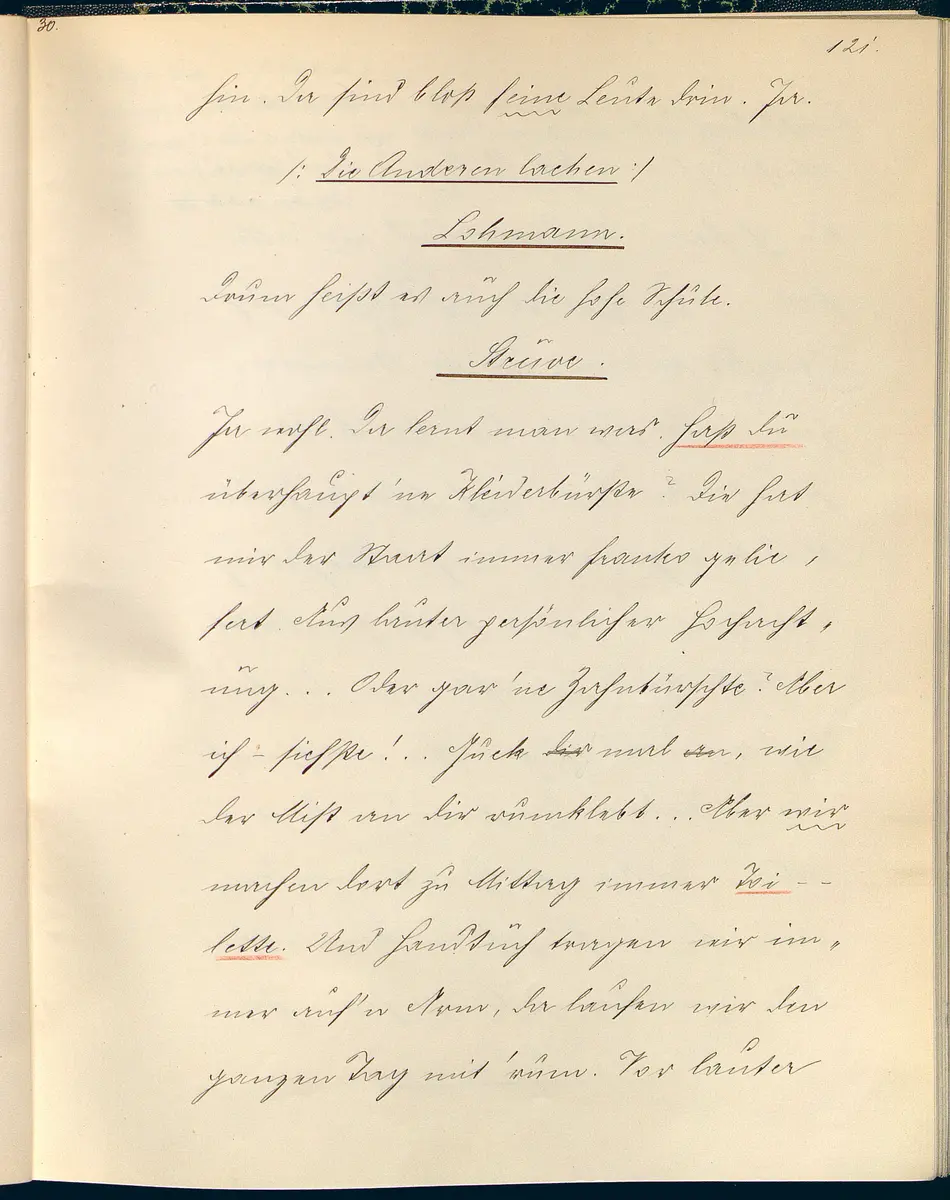 30.
121.
hin. Da sind bloß feine Leute drin. Ja.
/: Die Anderen lachen :/
Lohmann.
Drum heißt es auch die hohe Schule.
Struve.
Ja wohl. Da lernt man was. Haßt du
überhaupt 'ne Kleiderbürste? Die hat
mir der Staat immer franko gelie,
fert. Aus lauter persönlicher Hochacht,
ung... Oder gar 'ne Zahnbürschte? Aber
ich – siehste!.. Guck dir mal an, wie
der Mist an dir rumklebt... Aber wir
machen dort zu Mittag immer Toi--
lette. Und Handtuch tragen wir im,
mer auf'n Arm, da laufen wir den
ganzen Tag mit 'rum. Vor lauter